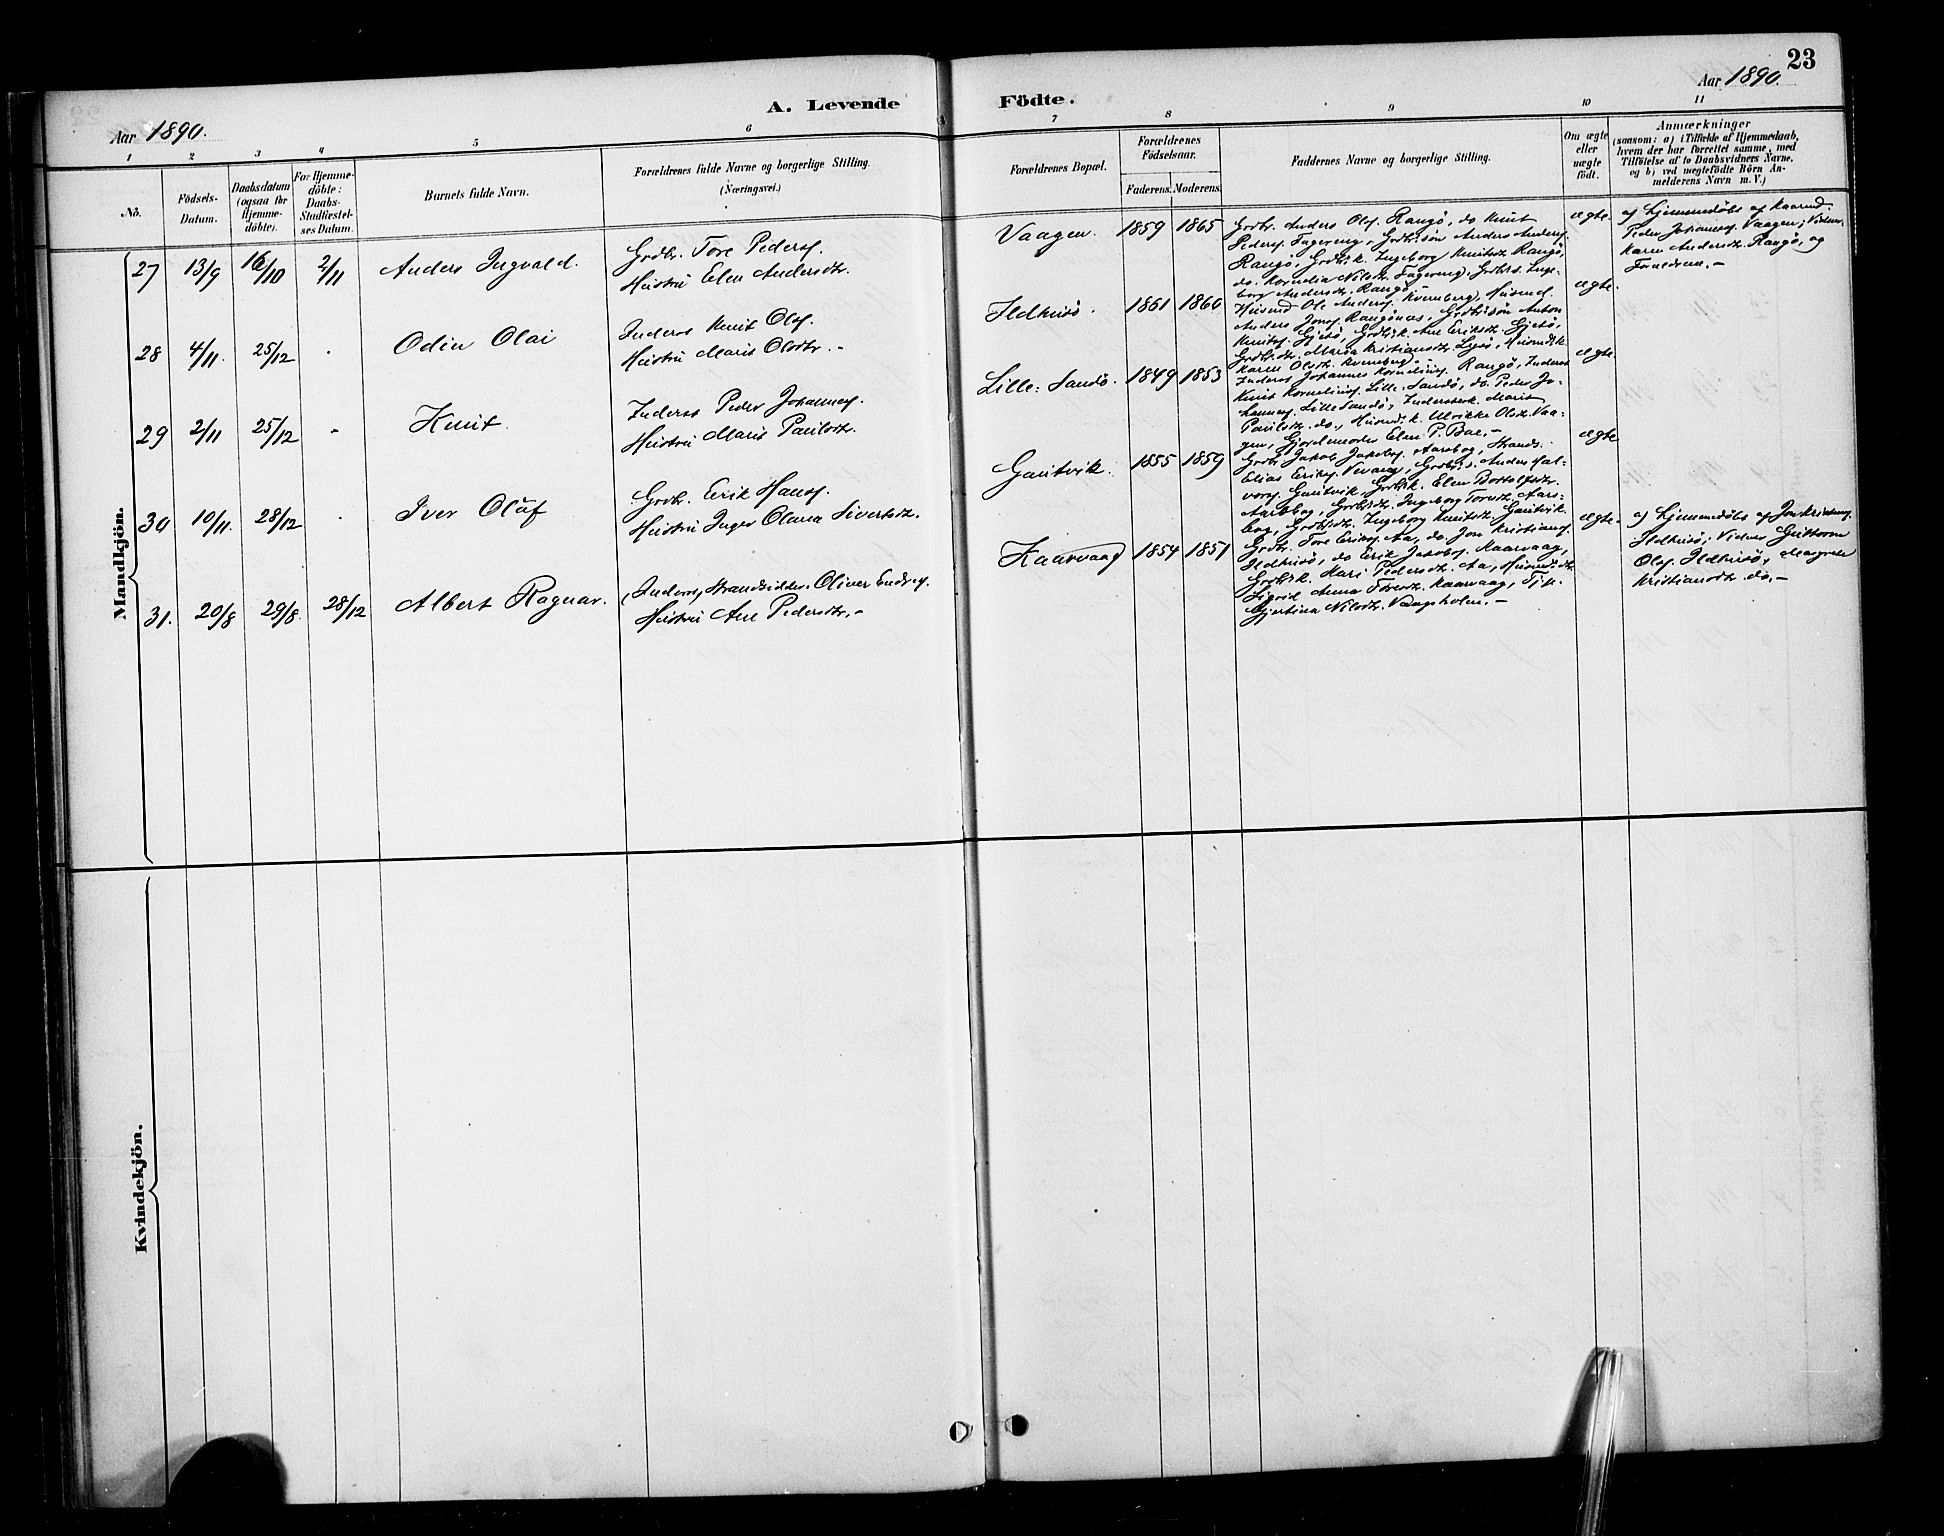 23
Aar 1890.
A. Levende Födte.
Aar 1890.
1 2 3 4 5 6 7 8 9 10 11
No.
Födsels-
Datum.
Daabsdatum
(ogsaa for
Hjemme-
döbte).
For Hjemme-
döbte:
Daabs-
Stadfæstel-
ses Datum.
Barnets fulde Navn.
Forældrenes fulde Navne og borgerlige Stilling.
(Næringsvei.)
Forældrenes Bopæl.
Forældrenes
Födselsaar.
Faderens. Moderens.
Faddernes Navne og borgerlige Stilling.
Om ægte
eller
uægte
født.
Anmærkninger
(saasom: a) i Tilfælde af Hjemmedaab,
hvem der har forrettet samme, med
Tilföielse af to Daabsvidners Navne,
og b) ved uægtefödte Börn An-
melderens Navn m. V.)
Mandkjön.
27 13/9 16/10 2/11 Anders Ingvald.
Grdbr. Tore Peders.
Hustru Elen Andersdtr.
Vaagen. 1859 1865
Grdbr. Anders Ols. Rangö, do Knut
Peders. Fagereng, Grdbrsön Anders Anders.
Rangö, Grdbr.k. Ingeborg Knutsdtr. Rangö,
do. Kornelia Nilsdtr. Fagereng, Grdbrd. Inge-
borg Andersdtr. Rangö.
ægte.
a) Hjemmedöbt af Kaarmd.
Peder Johannes. Vaagen; Vidner:
Karen Andersdtr. Rangö, og
Forældrene.-
28 4/11. 25/12 . Odin Olai
Inderst Knut Ols.
Hustru Marit Olsdtr.-
Ildhusö. 1861 1860
Husmd Ole Anders. Kvernberg, Husmd.
Anders Jons. Rangönæs, Grdbrsön Anton
Knuts. Gjetö, Grdbr.k. Ane Eriksdtr. Gjetö,
Grdbr.dtr. Maria Kristiansdtr. Husmdk.
Karen Olsdtr. Kvernberg.-
ægte.
29 2/11 25/12 - Knut.
Inderst Peder Johannes.
Hustru Marit Paulsdtr.
Lille-Sandö. 1849 1853
Inderst Johannes Kornelius. Rangö, Inderst
Knut Kornelius. Lille-Sandö, do. Peder Jo-
hannes. Lille Sandö, Inderstk. Marit
Paulsdtr. do., Husmdk. Ulrikke Olsdtr. Vaa-
gen, Gjordemoder Elen P. Bae.-
ægte.
30 10/11. 28/12 . Iver Oluf
Grdbr. Erik Hans.
Hustru Inger Olana Sivertsdtr.
Gautvik. 1855 1859
Grdbr. Jakob Jakobs. Aarsbog, Strands.
Elias Eriks. Vevang, Grdbrs. Anders Hal-
vors. Gautvik, Grdbr.k. Elen Bottolfsdtr.
Aarsbog, Grdbrdtr. Ingeborg Toresdtr. Aars-
bog, Grdbrdtr. Ingeborg Knutsdtr. Gautvik.
ægte
31. 20/8 29/8. 28/12 Albert Ragnar.
(Inderst, Strandsidder. Oliver Endres.
Hustru Ane Pedersdtr.-
Kaarvaag 1854 1851
Grdbr. Tore Eriks. Aa, do. Jon Kristians.
Ildhusö, do Erik Jakobs. Kaarvaag,
Grdbr.k. Mari Pedersdtr. Aa, Husmdsdtr.
Sigrid Anna Toresdtr. Kaarvaag, Tjp.
Gjertina Nilsdtr. Vaagsholm.-
ægte.
a) Hjemmedöbt af Jon Kristians.
Ildhusö; Vidner Guttorm
Ols. Ildhusö, Margrete
Kristiansdtr. do.-
Kvindekjön.